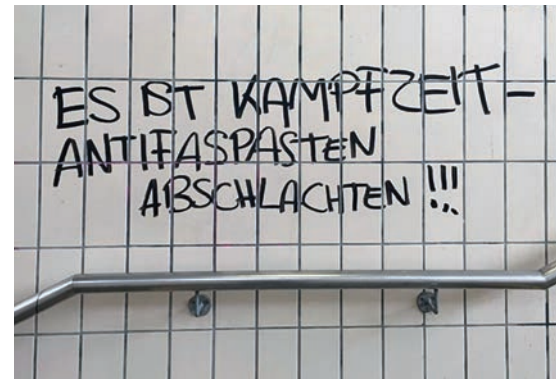 ES IST KAMPFZEIT -
ANTIFASPASTEN
ABSCHLACHTEN !!!